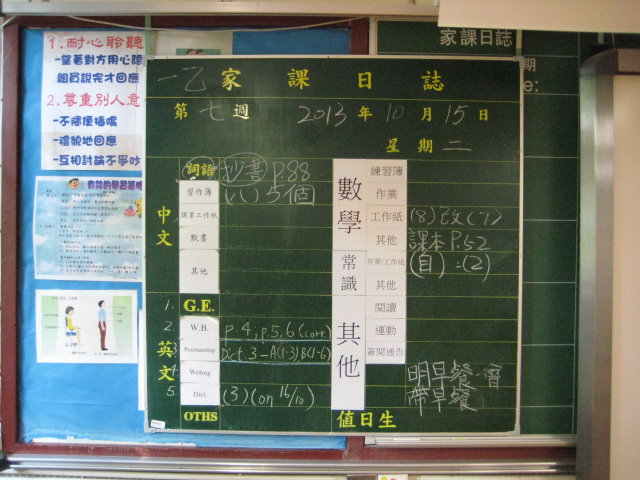 1.耐心聆聽
-望著對方用心聽
組員說完才回應
2.尊重別人意
-不隨便插嘴
-禮貌地回應
-互相討論不爭吵
有效的學習策略
家課日誌
期
e:
一乙家課日誌
第七週 2013年10月15日
星期二
中文
詞語 抄書 P.88
習作簿
課堂工作紙
默書
其他
英文
1. G.E.
2. W.B. P.4, p.5,6 (corr.)
3 Penmanship Dict. 3-A(1-3)B(1-6)
4 Writing
5. Dict. (3) (on 16/10)
OTHS
數學
練習簿
作業
工作紙 (8) 改(7)
其他 課本P.52
常識
作業/工作紙 (自):(2)
其他
其他
閱讀
運動
簽閱通告
明早餐會
帶早餐
值日生